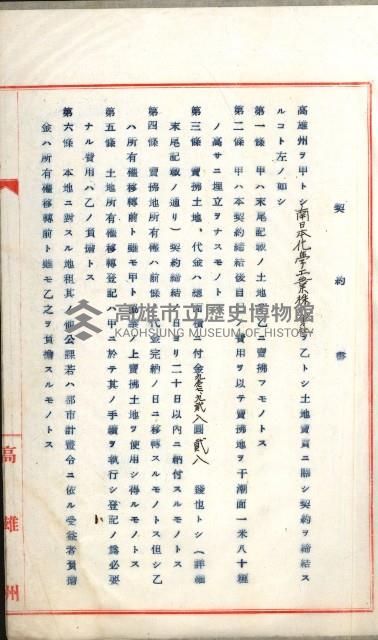 契約書
高雄州ヲ甲トシ南日本化學工業株式會社ヲ乙トシ土地賣買ニ關シ契約ヲ締結ス
ルコト左ノ如シ
第一條 甲ハ末尾記載ノ土地ヲ乙ニ賣拂フモノトス
第二條 甲ハ本契約締結後自 費用ヲ以テ賣拂地ヲ干潮面一米八十糎
ノ高サニ埋立ヲナスモノトス
第三條 賣拂土地ノ代金ハ總面積ニ付金 圓 錢也トシ(詳細
末尾記載ノ通リ)契約締結ノ日ヨリ二十日以內ニ納付スルモノトス
第四條 賣拂地所有權ハ前條ノ代金完納ノ日ニ移轉スルモノトス但シ乙
ハ所有權移轉前ト雖モ甲ト協議ノ上賣拂土地ヲ使用シ得ルモノトス
第五條 土地所有權移轉登記ハ甲ニ於テ其ノ手續ヲ執行シ登記ノ爲必要
ナル費用ハ乙ノ負擔トス
第六條 本地ニ對スル地租其ノ他公課若ハ都市計畫令ニ依ル受益者負擔
金ハ所有權移轉前ト雖モ乙之ヲ負擔スルモノトス
高雄州
高雄市立歷史博物館
KAOHSIUNG MUSEUM OF HISTORY